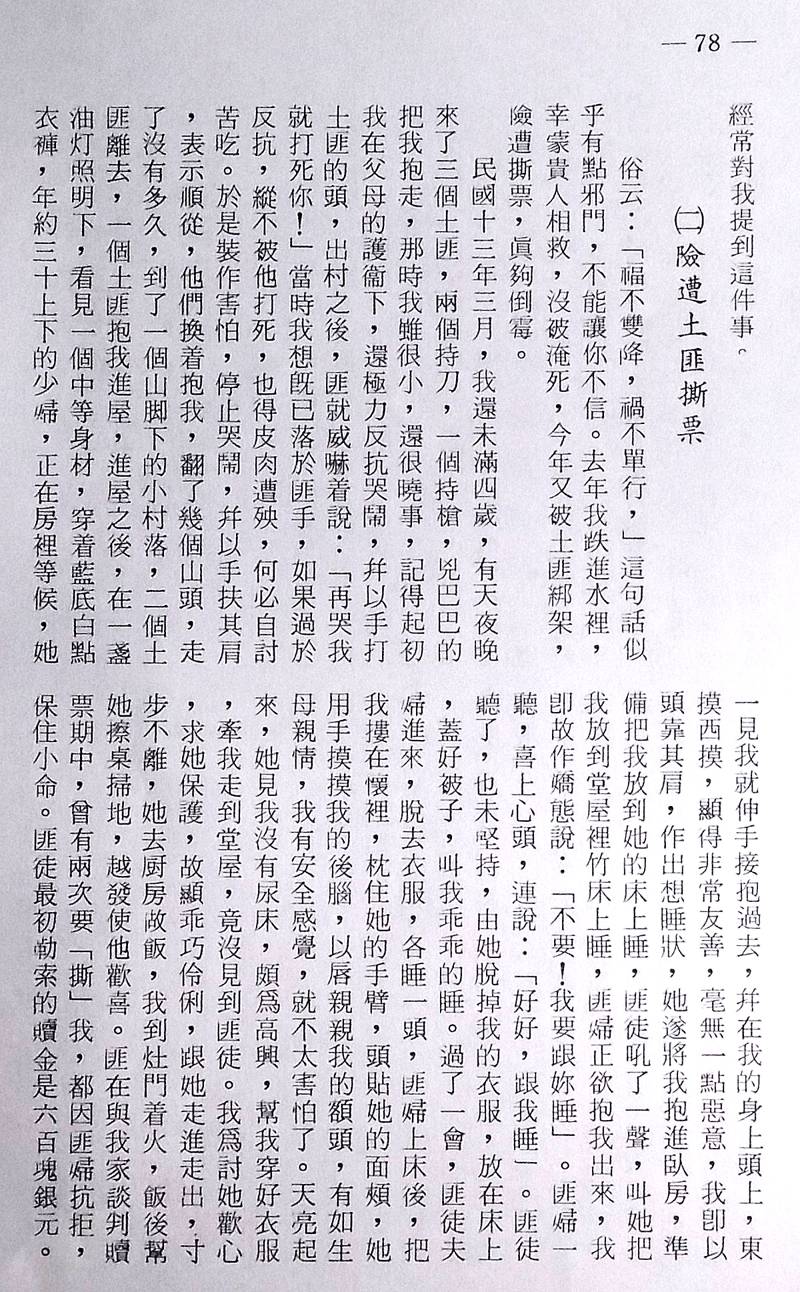 — 78 —
經常對我提到這件事。
㈡險遭土匪撕票
俗云：「福不雙降，禍不單行，」這句話似
乎有點邪門，不能讓你不信。去年我跌進水裡，
幸蒙貴人相救，沒被淹死，今年又被土匪綁架，
險遭撕票，眞夠倒霉。
民國十三年三月，我還未滿四歲，有天夜晚
來了三個土匪，兩個持刀，一個持槍，兇巴巴的
把我抱走，那時我雖很小，還很曉事，記得起初
我在父母的護衞下，還極力反抗哭鬧，幷以手打
土匪的頭，出村之後，匪就威嚇着說：「再哭我
就打死你！」當時我想旣已落於匪手，如果過於
反抗，縱不被他打死，也得皮肉遭殃，何必自討
苦吃。於是裝作害怕，停止哭鬧，幷以手扶其肩
，表示順從，他們換着抱我，翻了幾個山頭，走
了沒有多久，到了一個山脚下的小村落，二個土
匪離去，一個土匪抱我進屋，進屋之後，在一盞
油灯照明下，看見一個中等身材，穿着藍底白點
衣褲，年約三十上下的少婦，正在房裡等候，她
一見我就伸手接抱過去，幷在我的身上頭上，東
摸西摸，顯得非常友善，毫無一點惡意，我卽以
頭靠其肩，作出想睡狀，她遂將我抱進臥房，準
備把我放到她的床上睡，匪徒吼了一聲，叫她把
我放到堂屋裡竹床上睡，匪婦正欲抱我出來，我
卽故作嬌態說：「不要！我要跟妳睡」。匪婦一
聽，喜上心頭，連說：「好好，跟我睡」。匪徒
聽了，也未堅持，由她脫掉我的衣服，放在床上
，蓋好被子，叫我乖乖的睡。過了一會，匪徒夫
婦進來，脫去衣服，各睡一頭，匪婦上床後，把
我摟在懷裡，枕住她的手臂，頭貼她的面頰，她
用手摸摸我的後腦，以唇親親我的額頭，有如生
母親情，我有安全感覺，就不太害怕了。天亮起
來，她見我沒有尿床，頗爲高興，幫我穿好衣服
，牽我走到堂屋，竟沒見到匪徒。我爲討她歡心
，求她保護，故顯乖巧伶俐，跟她走進走出，寸
步不離，她去厨房做飯，我到灶門着火，飯後幫
她擦桌掃地，越發使他歡喜。匪在與我家談判贖
票期中，曾有兩次要「撕」我，都因匪婦抗拒，
保住小命。匪徒最初勒索的贖金是六百塊銀元。